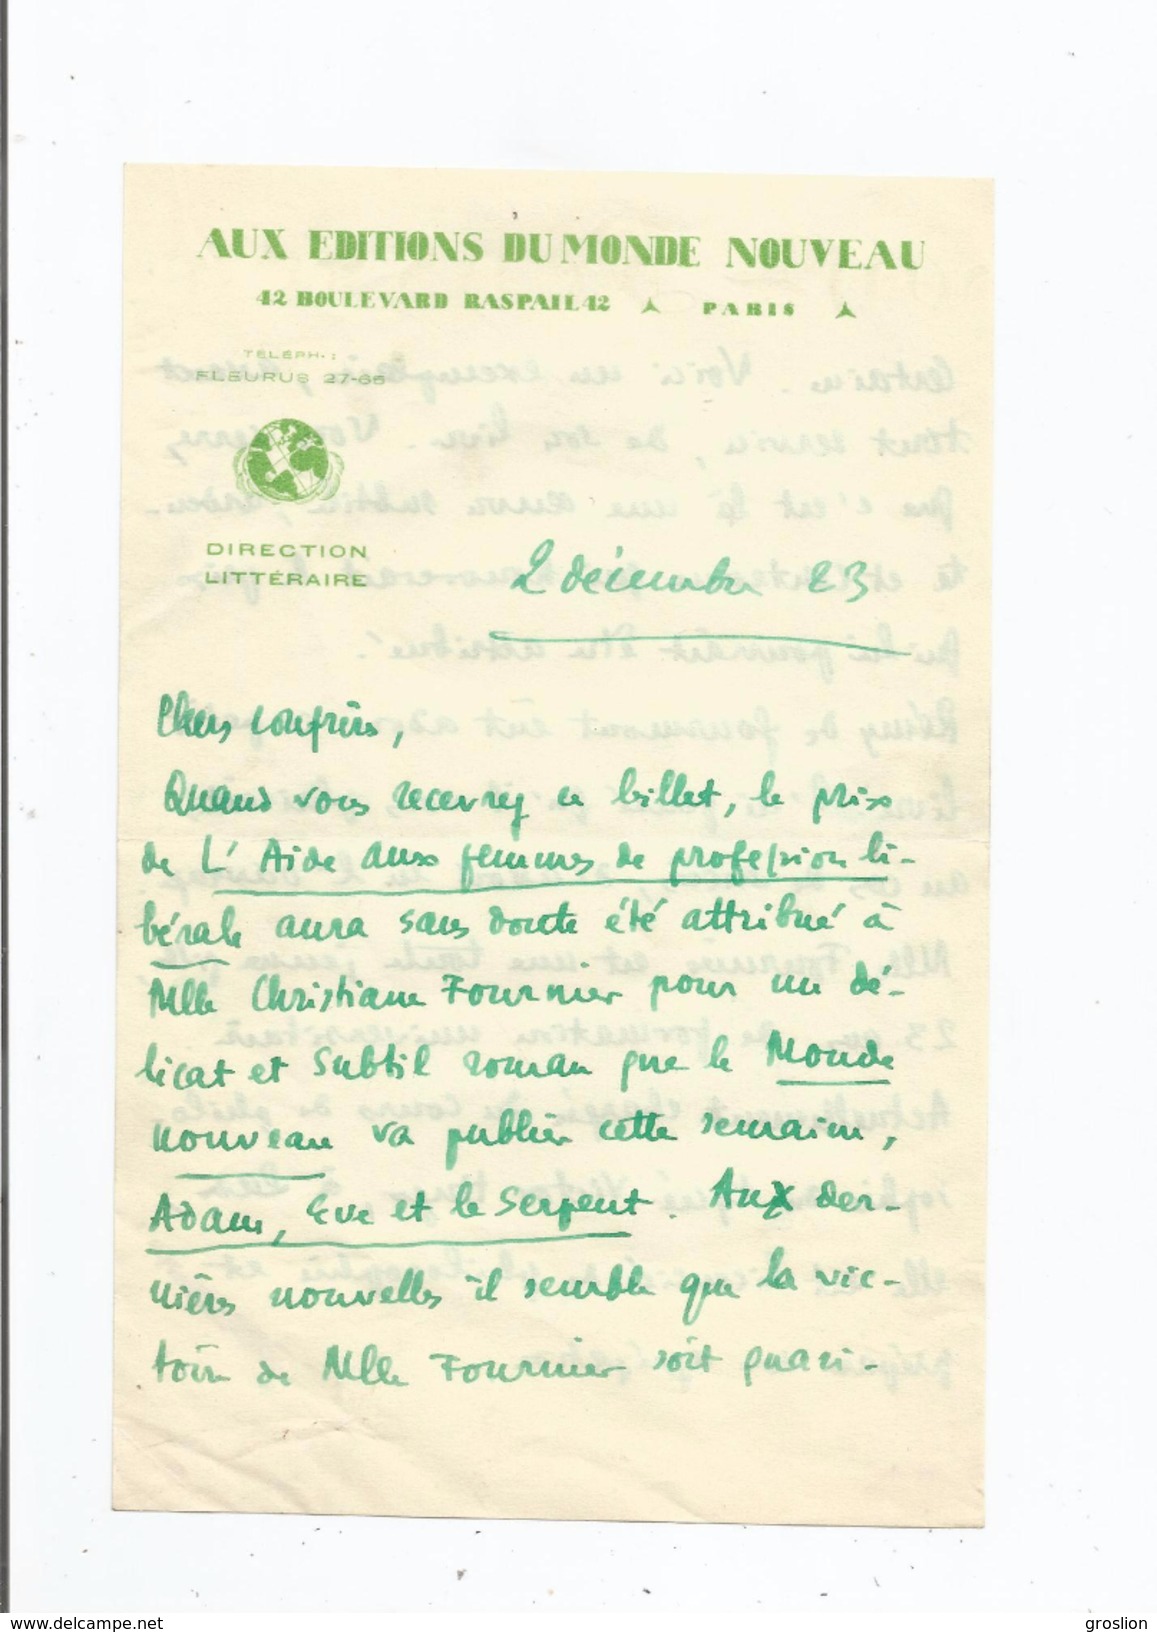 AUX EDITIONS DU MONDE NOUVEAU
42 BOULEVARD RASPAIL 42 PARIS
TÉLÉPH. :
FLEURUS 27-66
DIRECTION
LITTÉRAIRE
2 décembre 23
Chers confrères,
Quand vous recevrez ce billet, le prix
de L'Aide aux femmes de profession li-
bérale aura sans doute été attribué à
Mlle Christiane Fournier pour un dé-
licat et subtil roman que le Monde
nouveau va publier cette semaine,
Adam, Eve et le Serpent. Aux der-
nières nouvelles il semble que la vic-
toire de Mlle Fournier soit quasi-
www.delcampe.net
groslion